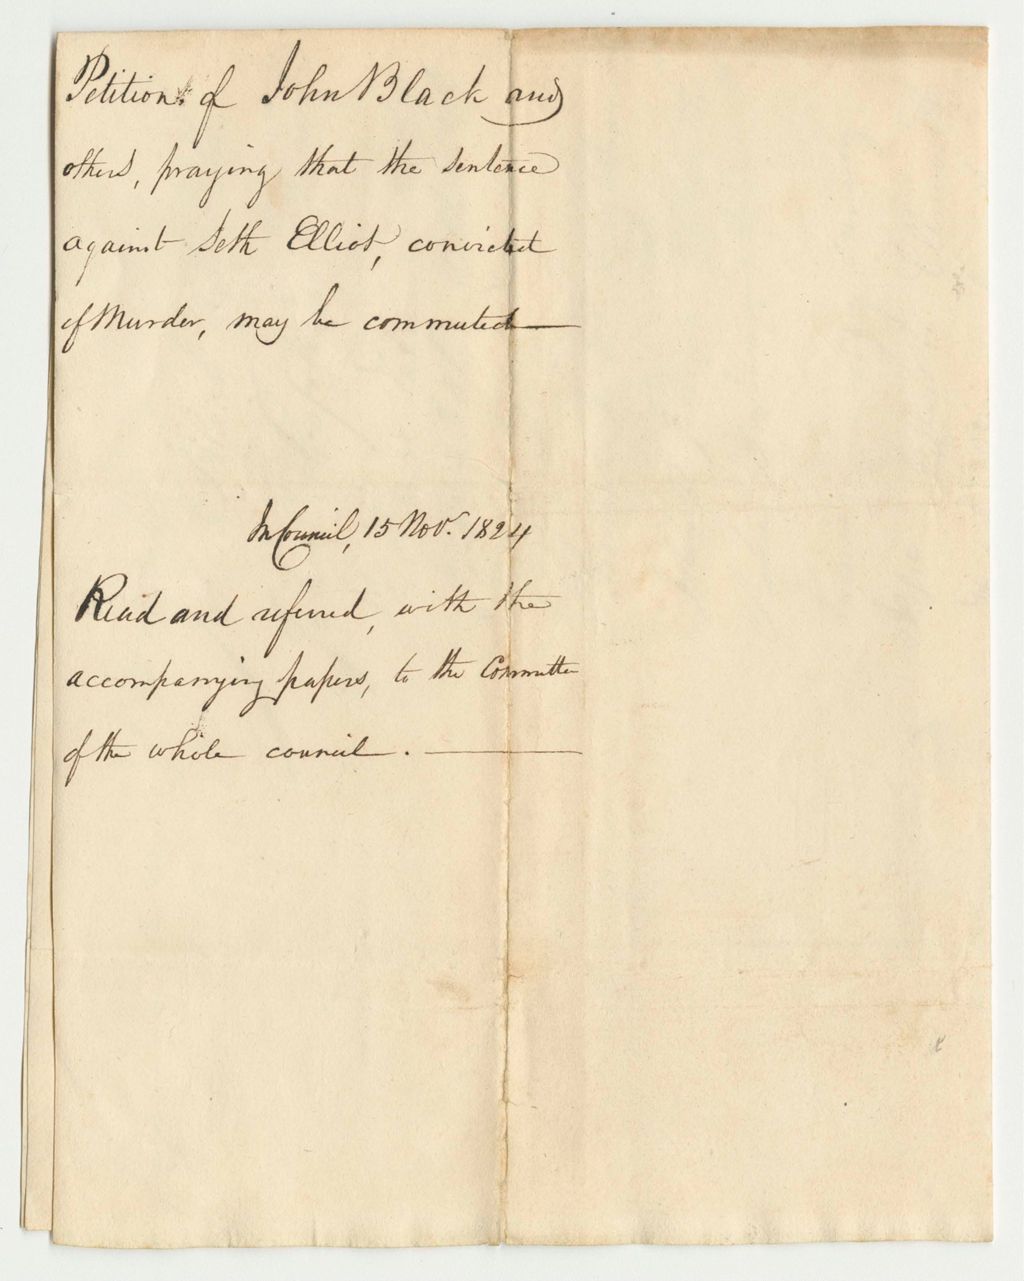 Petition of John Black and
others, praying that the sentence
against Seth Elliot, convicted
of Murder, may be commuted
In Council, 15 Nov. 1824
Read and referred, with the
accompanying papers, to the Committee
of the whole council.